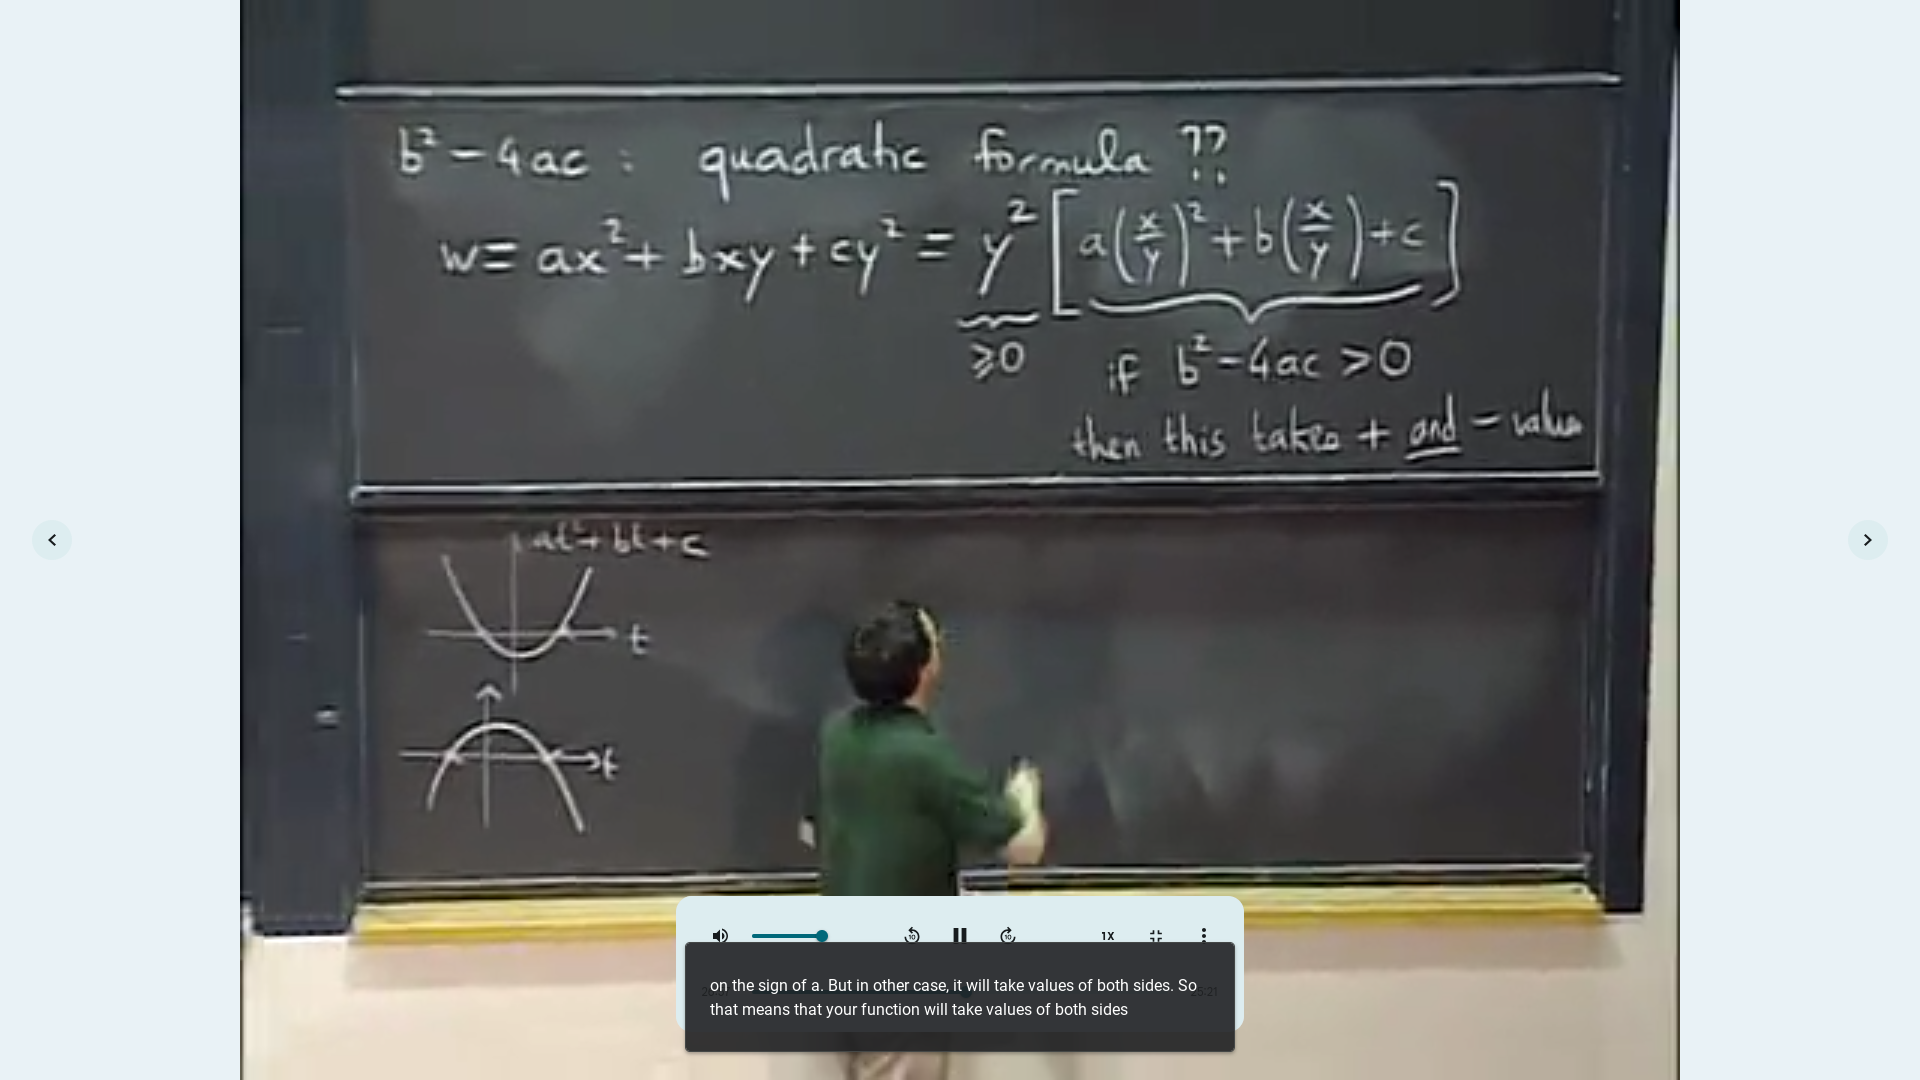 b² - 4ac : quadratic formula ??
w = ax² + bxy + cy² = y² [a(x/y)² + b(x/y) + c]
≥0 if b² - 4ac > 0
then this takes + and - values
at² + bt + c
t
t
1X
on the sign of a. But in other case, it will take values of both sides. So
that means that your function will take values of both sides